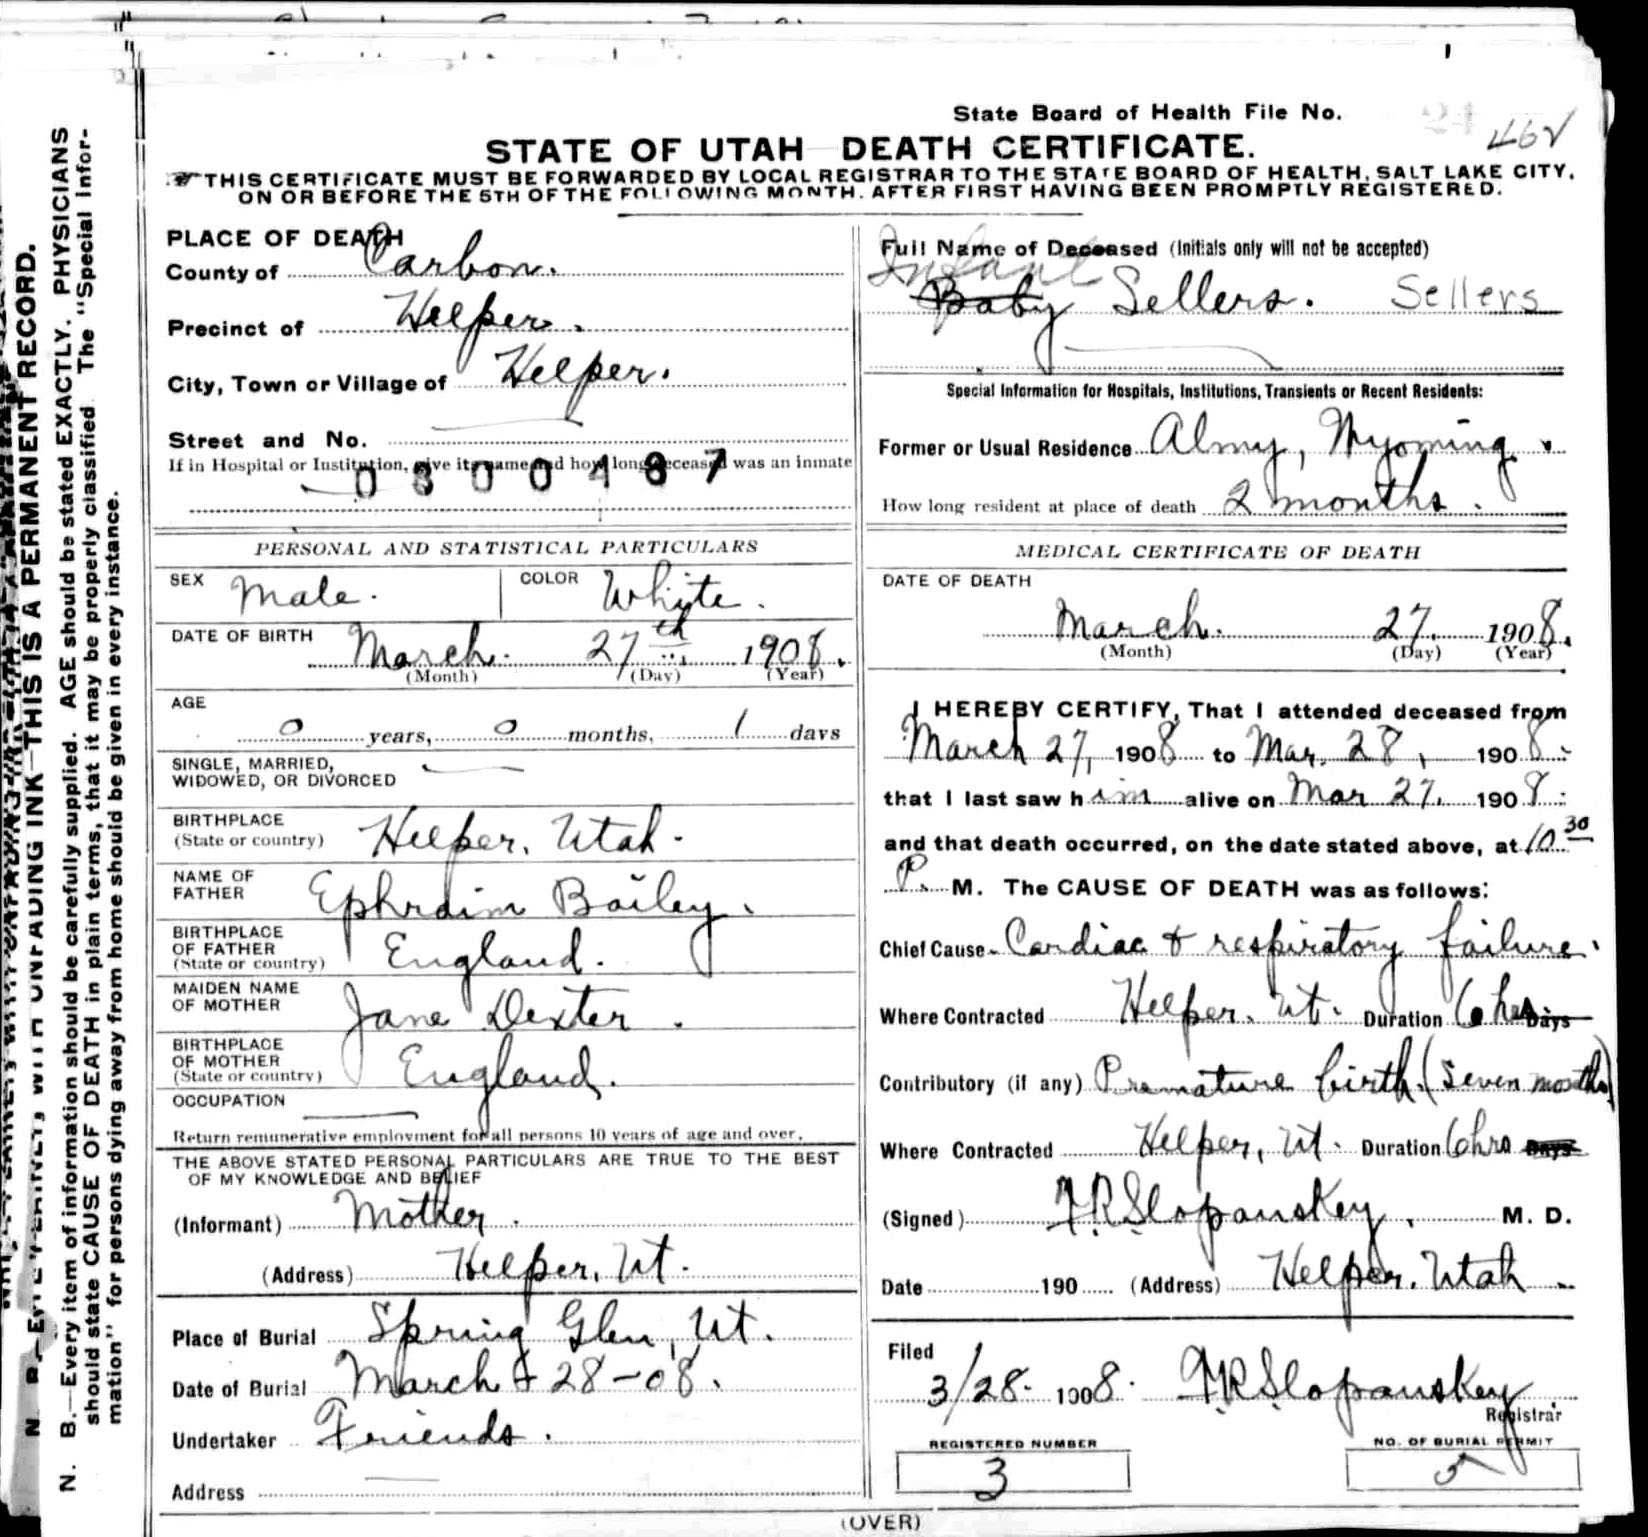 State Board of Health File No. 24 462
STATE OF UTAH DEATH CERTIFICATE.
THIS CERTIFICATE MUST BE FORWARDED BY LOCAL REGISTRAR TO THE STATE BOARD OF HEALTH, SALT LAKE CITY,
ON OR BEFORE THE 5TH OF THE FOLLOWING MONTH, AFTER FIRST HAVING BEEN PROMPTLY REGISTERED.
PLACE OF DEATH
County of Carbon.
Precinct of Helper.
City, Town or Village of Helper.
Street and No.
If in Hospital or Institution, give its name and how long deceased was an inmate
0300487
PERSONAL AND STATISTICAL PARTICULARS
SEX Male. COLOR White.
DATE OF BIRTH March 27th 1908.
(Month) (Day) (Year)
AGE
0 years, 0 months, 1 days
SINGLE, MARRIED,
WIDOWED, OR DIVORCED
BIRTHPLACE
(State or country) Helper, Utah.
NAME OF
FATHER Ephraim Bailey.
BIRTHPLACE
OF FATHER
(State or country) England.
MAIDEN NAME
OF MOTHER Jane Dexter.
BIRTHPLACE
OF MOTHER
(State or country) England.
OCCUPATION
Return remunerative employment for all persons 10 years of age and over.
THE ABOVE STATED PERSONAL PARTICULARS ARE TRUE TO THE BEST
OF MY KNOWLEDGE AND BELIEF
(Informant) Mother.
(Address) Helper, Ut.
Place of Burial Spring Glen, Ut.
Date of Burial March 28-08.
Undertaker Friends.
Address
Full Name of Deceased (Initials only will not be accepted)
Infant
Baby Sellers. Sellers
Special Information for Hospitals, Institutions, Transients or Recent Residents:
Former or Usual Residence Almy, Wyoming.
How long resident at place of death 2 months.
MEDICAL CERTIFICATE OF DEATH
DATE OF DEATH
March. 27. 1908.
(Month) (Day) (Year)
I HEREBY CERTIFY, That I attended deceased from
March 27, 1908 to Mar. 28, 1908.
that I last saw him alive on Mar 27. 1908.
and that death occurred, on the date stated above, at 10 30
P. M. The CAUSE OF DEATH was as follows:
Chief Cause Cardiac & respiratory failure.
Where Contracted Helper. Ut. Duration 6 hrs Days
Contributory (if any) Premature birth. (Seven months)
Where Contracted Helper, Ut. Duration 6 hrs Days
(Signed) F.R. Slopanskey. M. D.
Date 190 (Address) Helper. Utah
Filed
3/28- 1908. F.R. Slopanskey
Registrar
REGISTERED NUMBER
3
NO. OF BURIAL PERMIT
5
(OVER)
N. B.—Every item of information should be carefully supplied. AGE should be stated EXACTLY. PHYSICIANS
should state CAUSE OF DEATH in plain terms, that it may be properly classified. The "Special Infor-
mation" for persons dying away from home should be given in every instance.
WITH UNFADING INK—THIS IS A PERMANENT RECORD.